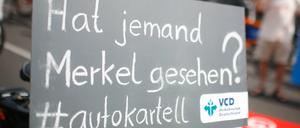 Hat jemand
Merkel gesehen?
#autokartell
VCD